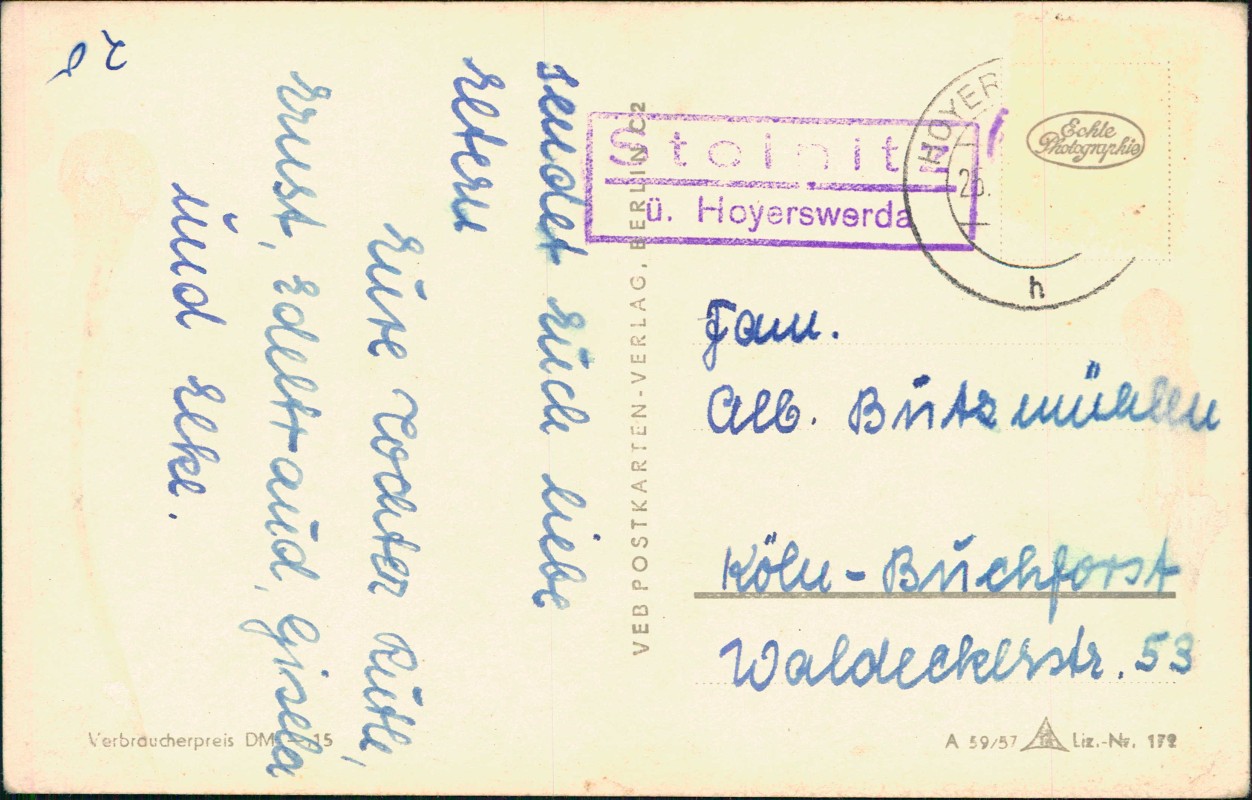 sendet Euch liebe
Eltern
Eure Tochter Ruth,
Ernst, Edeltraud, Gisela
und Elke.
VEB POSTKARTEN-VERLAG, BERLIN C2
Verbraucherpreis DM 15
Steinitz
ü. Hoyerswerda
HOYER
h
Echte
Photographie
Fam.
Alb. Butzmühlen
Köln-Buchforst
Waldeckerstr. 53
A 59/57
Liz.-Nr. 172